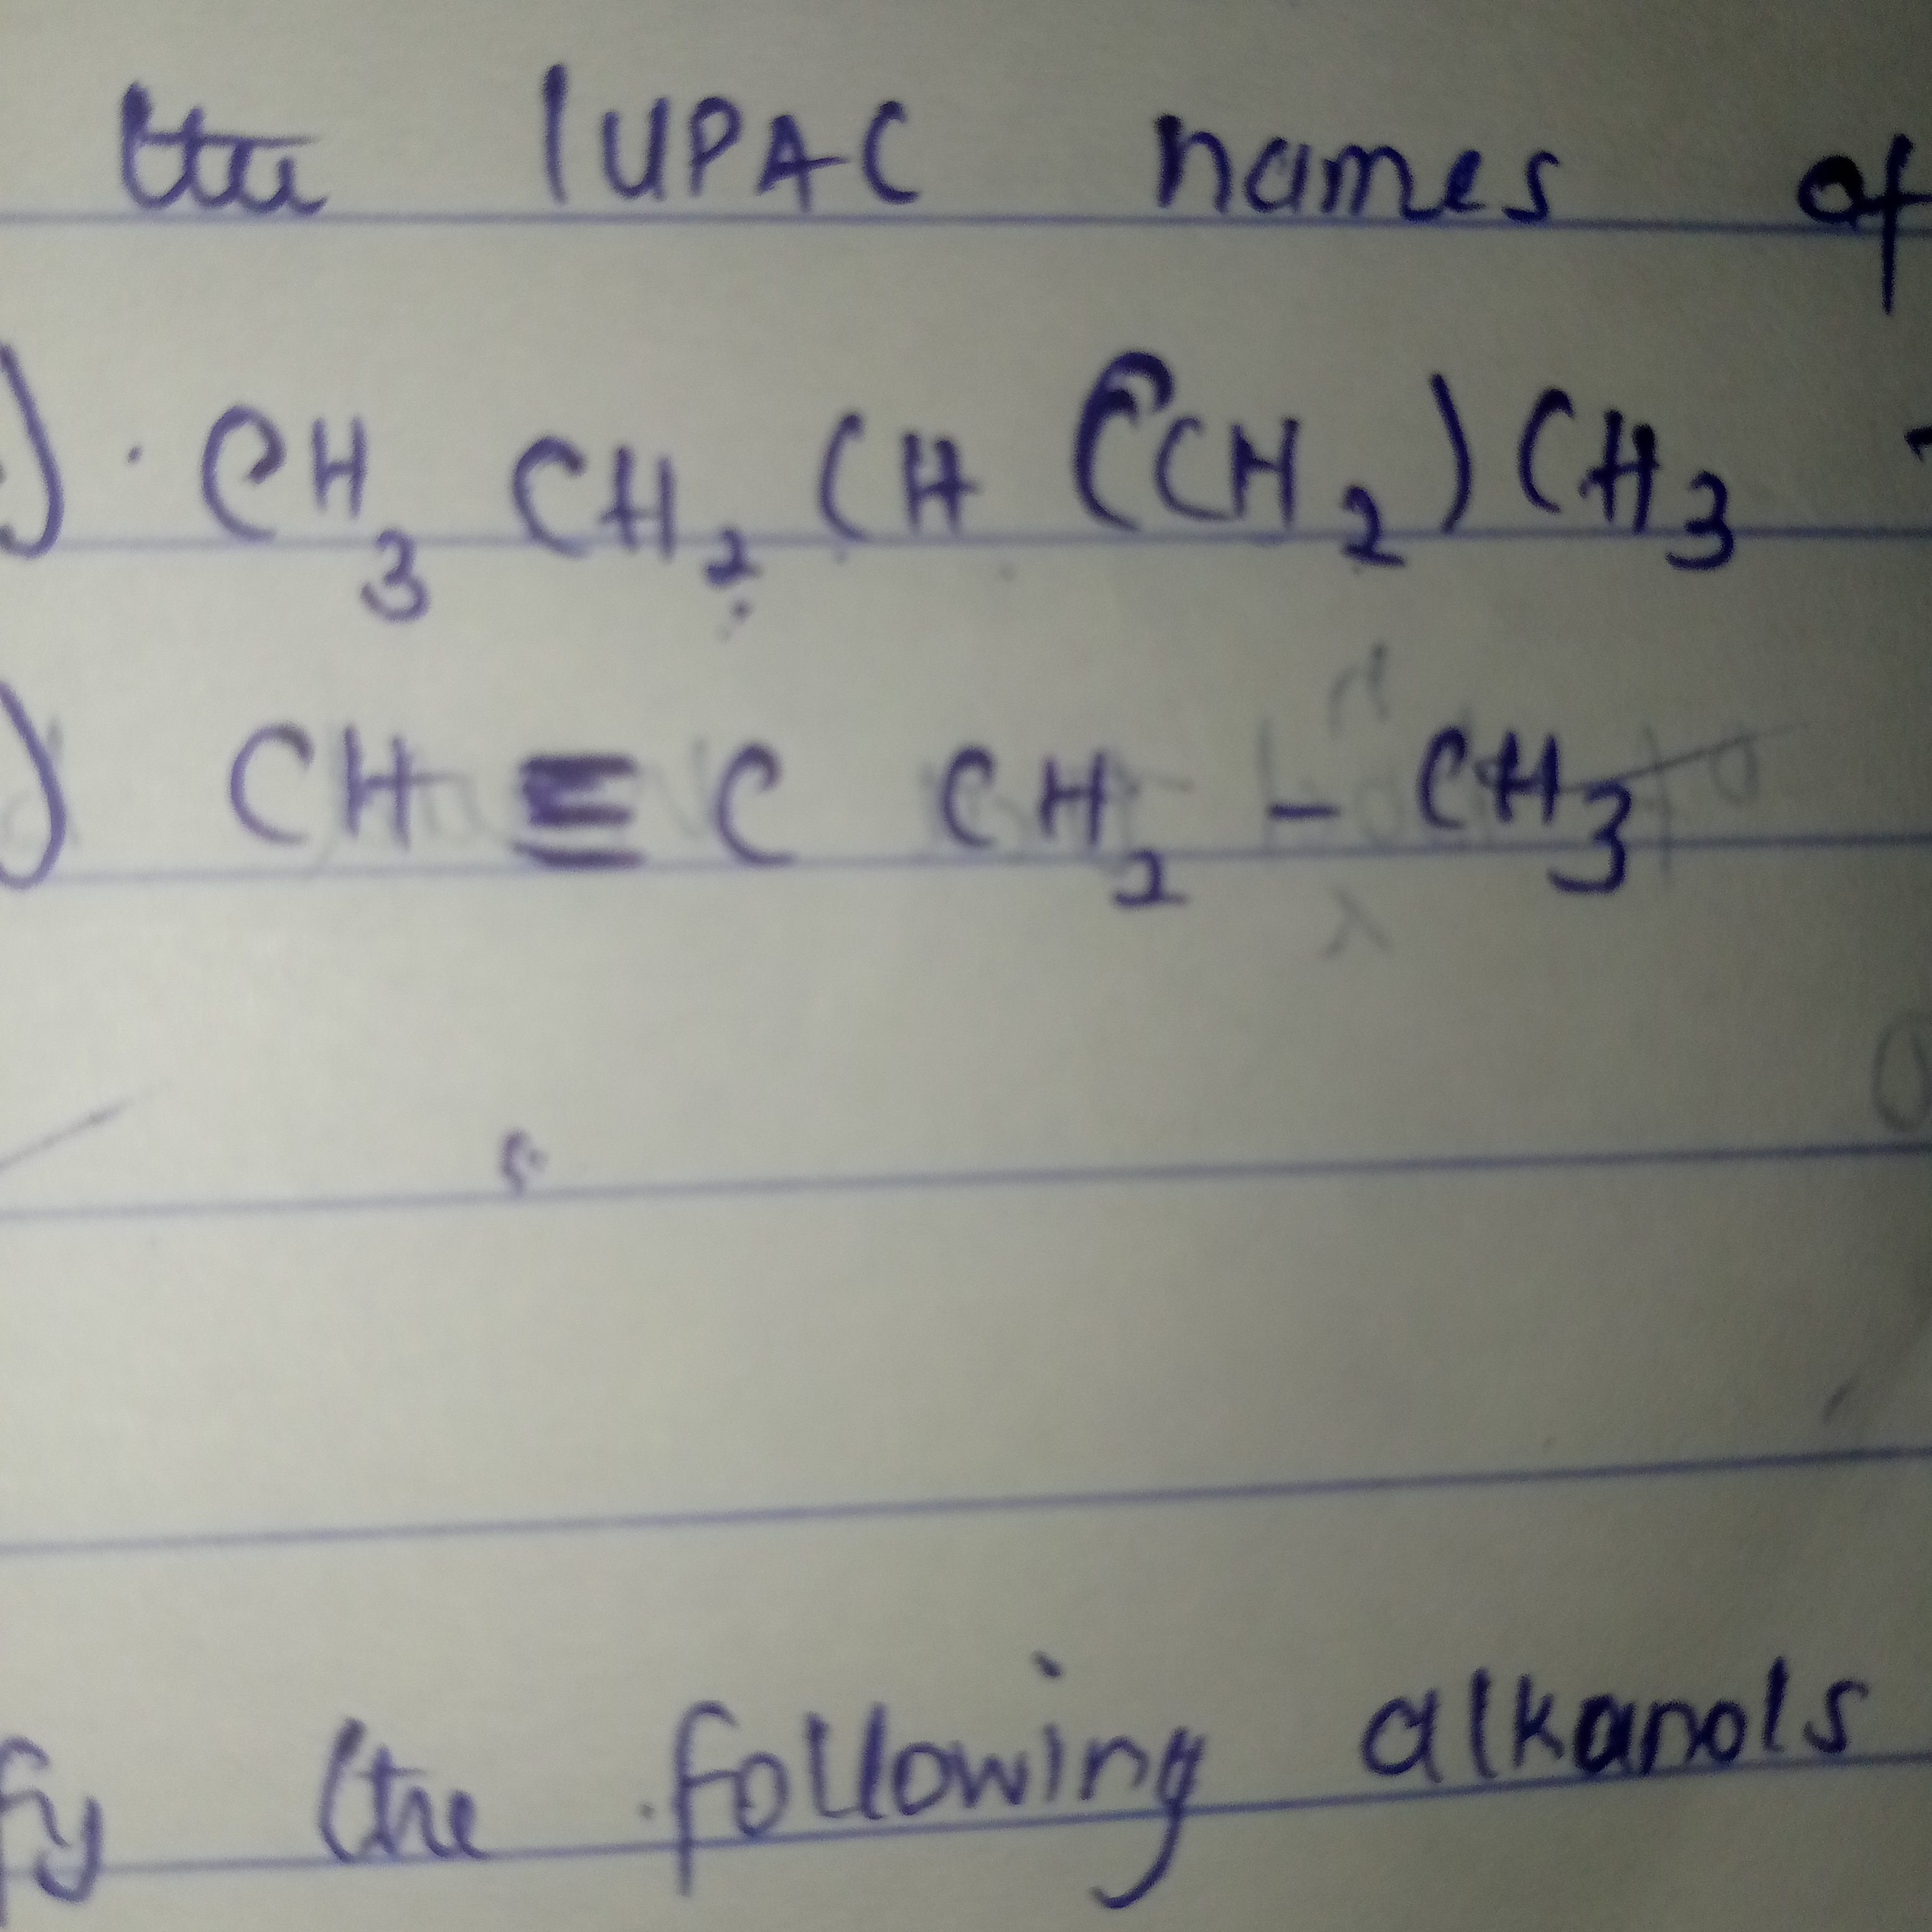 the IUPAC names of
) CH3 CH2 CH (CH2) CH3
) CH ≡ C CH2 - CH3
fy the following alkanols